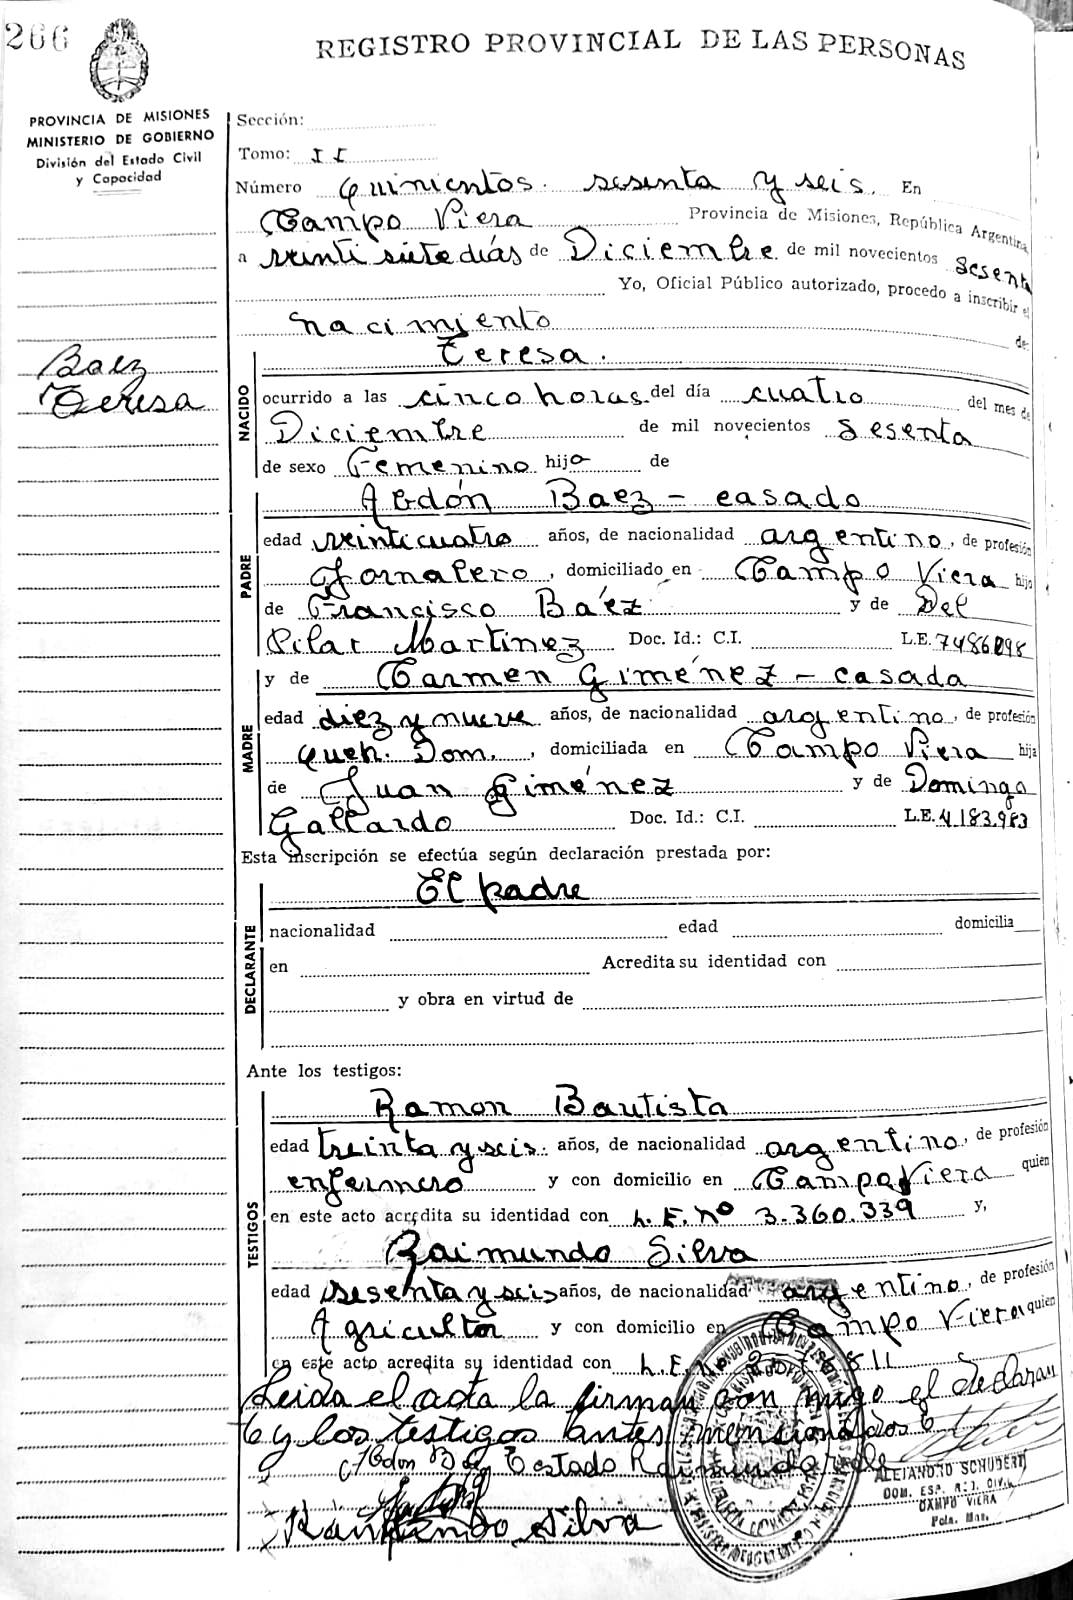 266
REGISTRO PROVINCIAL DE LAS PERSONAS
PROVINCIA DE MISIONES
MINISTERIO DE GOBIERNO
División del Estado Civil
y Capacidad
Baez
Teresa
Sección:
Tomo: II
Número Quinientos sesenta y seis. En
Campo Viera Provincia de Misiones, República Argentina,
a veinti siete días de Diciembre de mil novecientos sesenta
Yo, Oficial Público autorizado, procedo a inscribir el
nacimiento de:
NACIDO
Teresa.
ocurrido a las cinco horas del día cuatro del mes de
Diciembre de mil novecientos sesenta
de sexo Femenino hija de
PADRE
Abdón Baez - casado
edad veinticuatro años, de nacionalidad argentino, de profesión
Jornalero, domiciliado en Campo Viera hijo
de Francisco Báez y de Del
Pilar Martínez Doc. Id.: C.I. L.E. 7486098
MADRE
y de Carmen Giménez - casada
edad diez y nueve años, de nacionalidad argentino, de profesión
Queh. Dom., domiciliada en Campo Viera hija
de Juan Giménez y de Dominga
Gallardo Doc. Id.: C.I. L.E. 4.183.983
Esta inscripción se efectúa según declaración prestada por:
DECLARANTE
El padre
nacionalidad edad domicilia
en Acredita su identidad con
y obra en virtud de
Ante los testigos:
TESTIGOS
Ramon Bautista
edad treinta y seis. años, de nacionalidad argentino, de profesión
enfermero y con domicilio en Campo Viera quien
en este acto acredita su identidad con L.E. Nº 3.360.339 y,
Raimundo Silva
edad sesenta y seis años, de nacionalidad argentino, de profesión
Agricultor y con domicilio en Campo Viera quien
en este acto acredita su identidad con L.E.
Leida el acta la firman con migo el declaran
te y los testigos antes mensionados
Abdon Baez Testado Raimundo Vale
Raimundo Silva
ALEJANDRO SCHUBERT
CAMPO VIERA